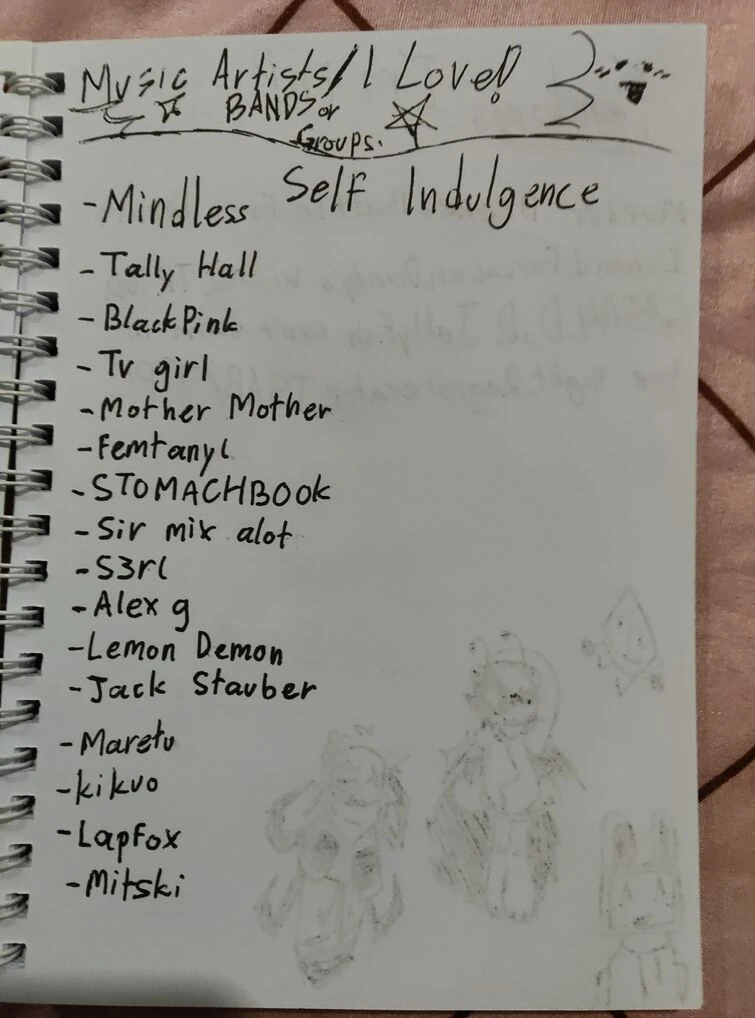 Music Artists/I Love!
BANDS or
Groups.
-Mindless Self Indulgence
-Tally Hall
-BlackPink
-Tv girl
-Mother Mother
-Femtanyl
-STOMACHBOOK
-Sir mix alot
-S3rl
-Alex g
-Lemon Demon
-Jack Stauber
-Maretu
-kikuo
-LapFox
-Mitski